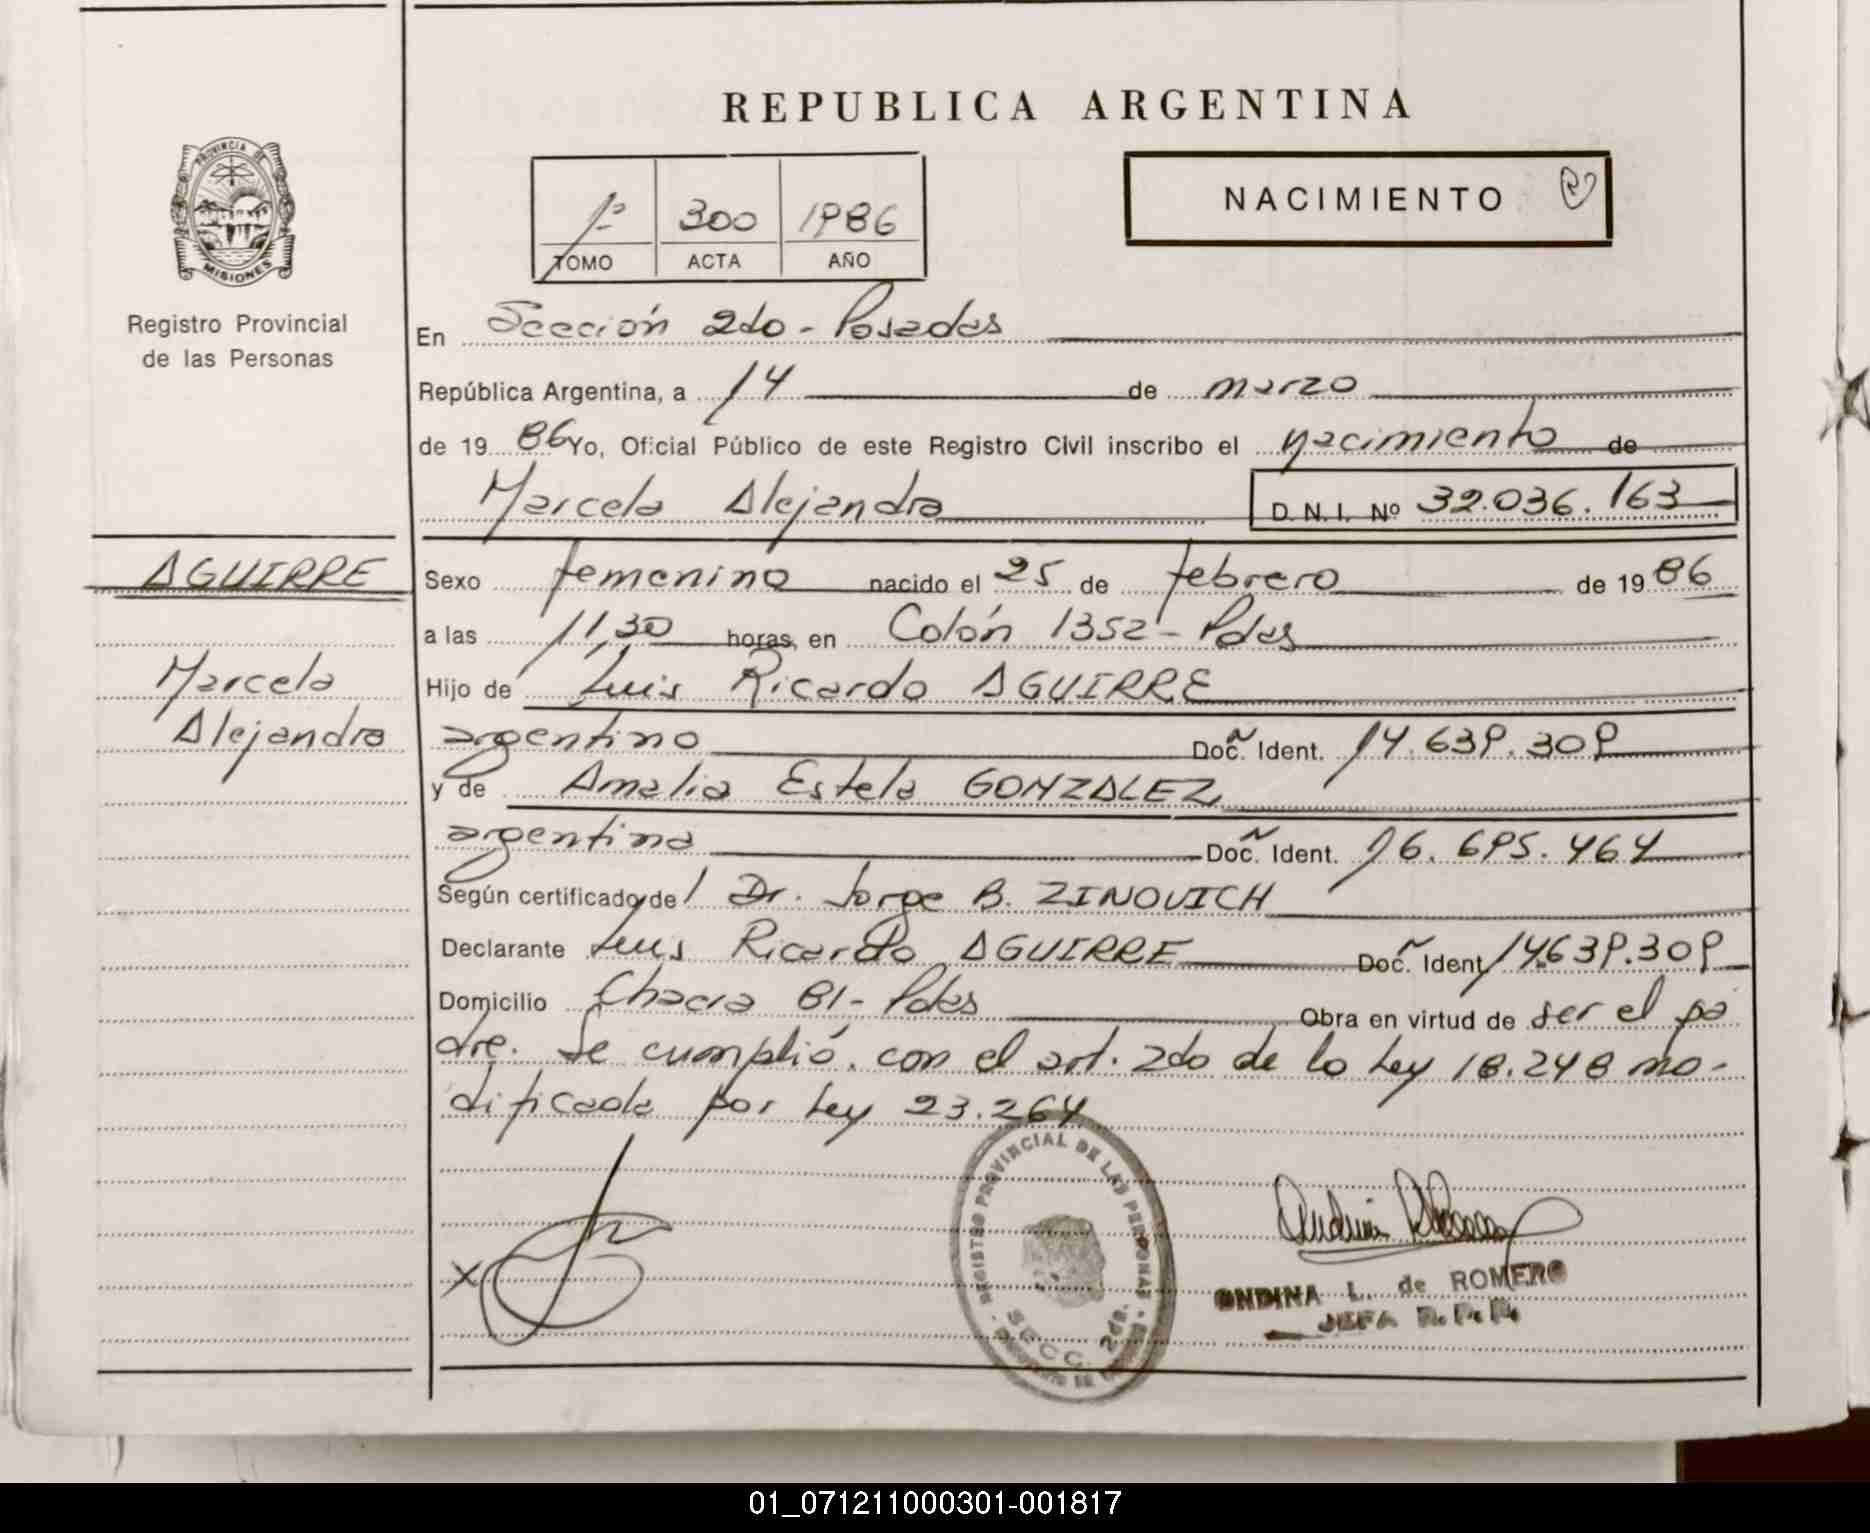 REPUBLICA ARGENTINA
PROVINCIA DE
MISIONES
Registro Provincial
de las Personas
1º 300 1986
TOMO ACTA AÑO
NACIMIENTO
En Sección 2do - Posadas
República Argentina, a 14 de marzo
de 19 86 Yo, Oficial Público de este Registro Civil inscribo el nacimiento de
Marcela Alejandra D.N.I. Nº 32.036.163
AGUIRRE
Marcela
Alejandra
Sexo femenino nacido el 25 de febrero de 19 86
a las 11,30 horas, en Colón 1352 - Pdas
Hijo de Luis Ricardo AGUIRRE
argentino Doc. Ident. 14.639.309
y de Amalia Estela GONZALEZ
argentina Doc. Ident. 16.695.464
Según certificado de Dr. Jorge B. ZINOVICH
Declarante Luis Ricardo AGUIRRE Doc. Ident. 14.639.309
Domicilio Chacra 81 - Pdas Obra en virtud de ser el pa
dre. Se cumplió con el art. 2do de la Ley 18.248 mo-
dificada por Ley 23.264
REGISTRO PROVINCIAL DE LAS PERSONAS
SECC. 2da.
X
ONDINA L. de ROMERO
JEFA R.P.P.
01_071211000301-001817